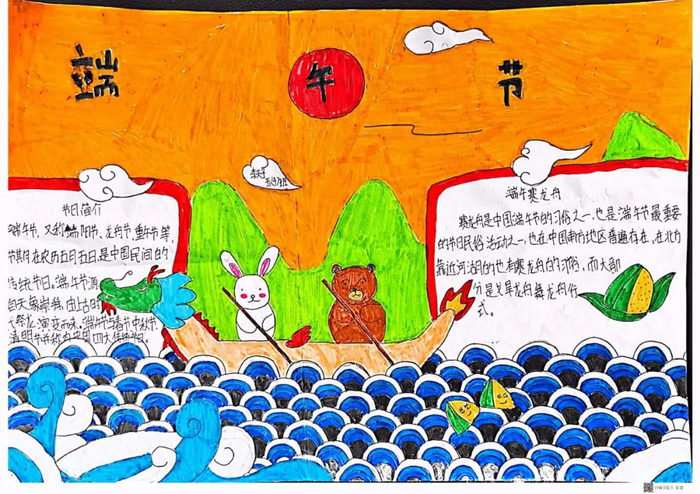 端午节
节日简介
端午节，又称端阳节、龙舟节、重午节等，
节期在农历五月五日，是中国民间的
传统节日。端午节源
自天象崇拜，由上古时
祭龙演变而来。端午节与春节、中秋节、
清明节并称为中国四大传统节日。
端午赛龙舟
赛龙舟是中国端午节的习俗之一，也是端午节最重要
的节日民俗活动之一，也在中国南方地区普遍存在，在北方
靠近河湖的也有赛龙舟的习俗，而大部
分是划旱龙舟舞龙舟形
式。